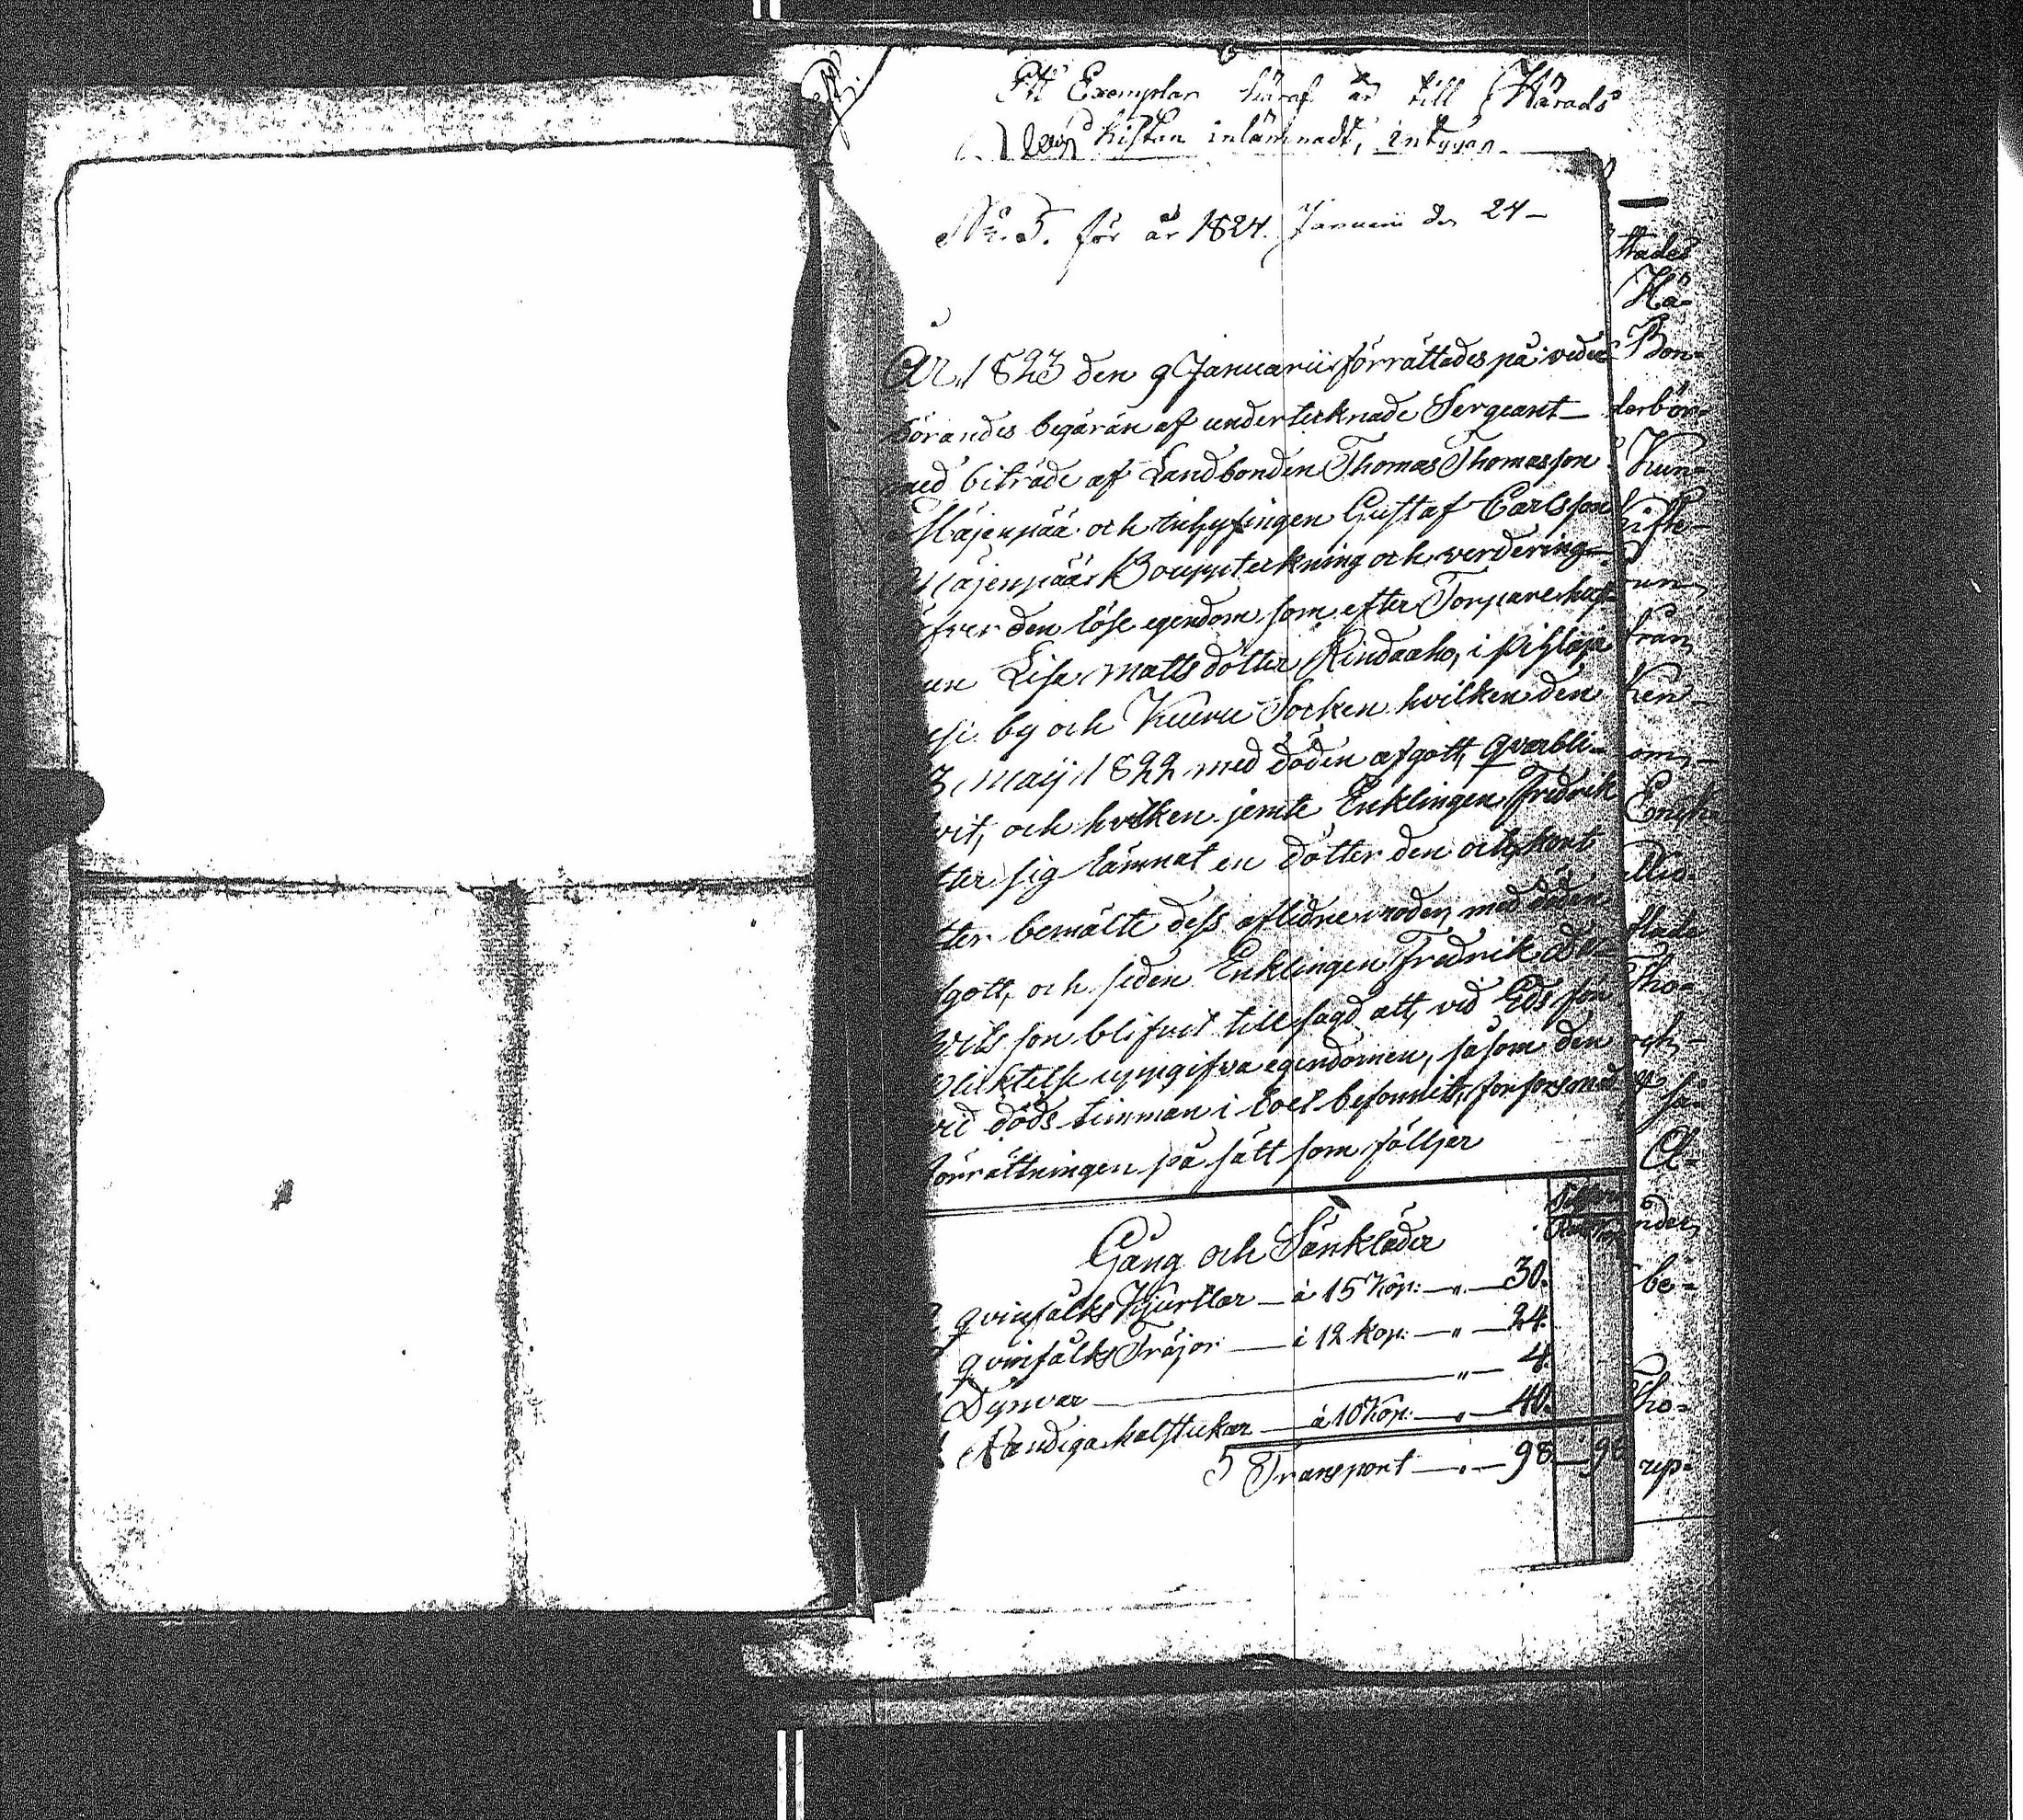 Ett Exemplar häraf är till Härads
kistan inlämnadt, intygar
No. 5. för år 1824. Januarii den 24
År 1823 den 9 Januarii förrättades på veder-
börandes begäran af undertecknade Sergeant
med biträde af Landbonden Thomas Thomasson
Mäjenpää och inhysingen Gustaf Carlsson
Mäjenpää Bouppteckning och verdering
öfver den lösa egendom som efter Torparehust-
run Lisa Mattsdotter Rindaaho, i Pihlaja
by och Kuru Socken hvilken den
3 Maij 1822 med döden afgott, qvarbli-
vit, och hvilken jemte Enklingen Fredrik
efter sig lämnat en dotter den och kort
efter bemälte dess aflidne moder, med döden
afgott, och sedan Enklingen Fredrik
son blifvit tillsagd att, vid Eds för
pliktelse uppgifva egendomen, såsom den
vid döds timman i boet befounits,
förrättningen på sätt som följer
Gång och Sänkläder
2 qvinfålks Kjurtlar — à 15 Kop: — „ — 30.
2 qvinfålks Tröjor — à 12 kop: — „ — 24.
1 Dynvar — „ — 4.
4 Handiga halstukar — à 10 Kop: — „ — 40.
Transport — „ — 98 — 98
ttades
Hä-
Bon-
derbör-
Kun-
från
Ken-
om
Tho-
och
så-
A-
be-
Tho-
up-